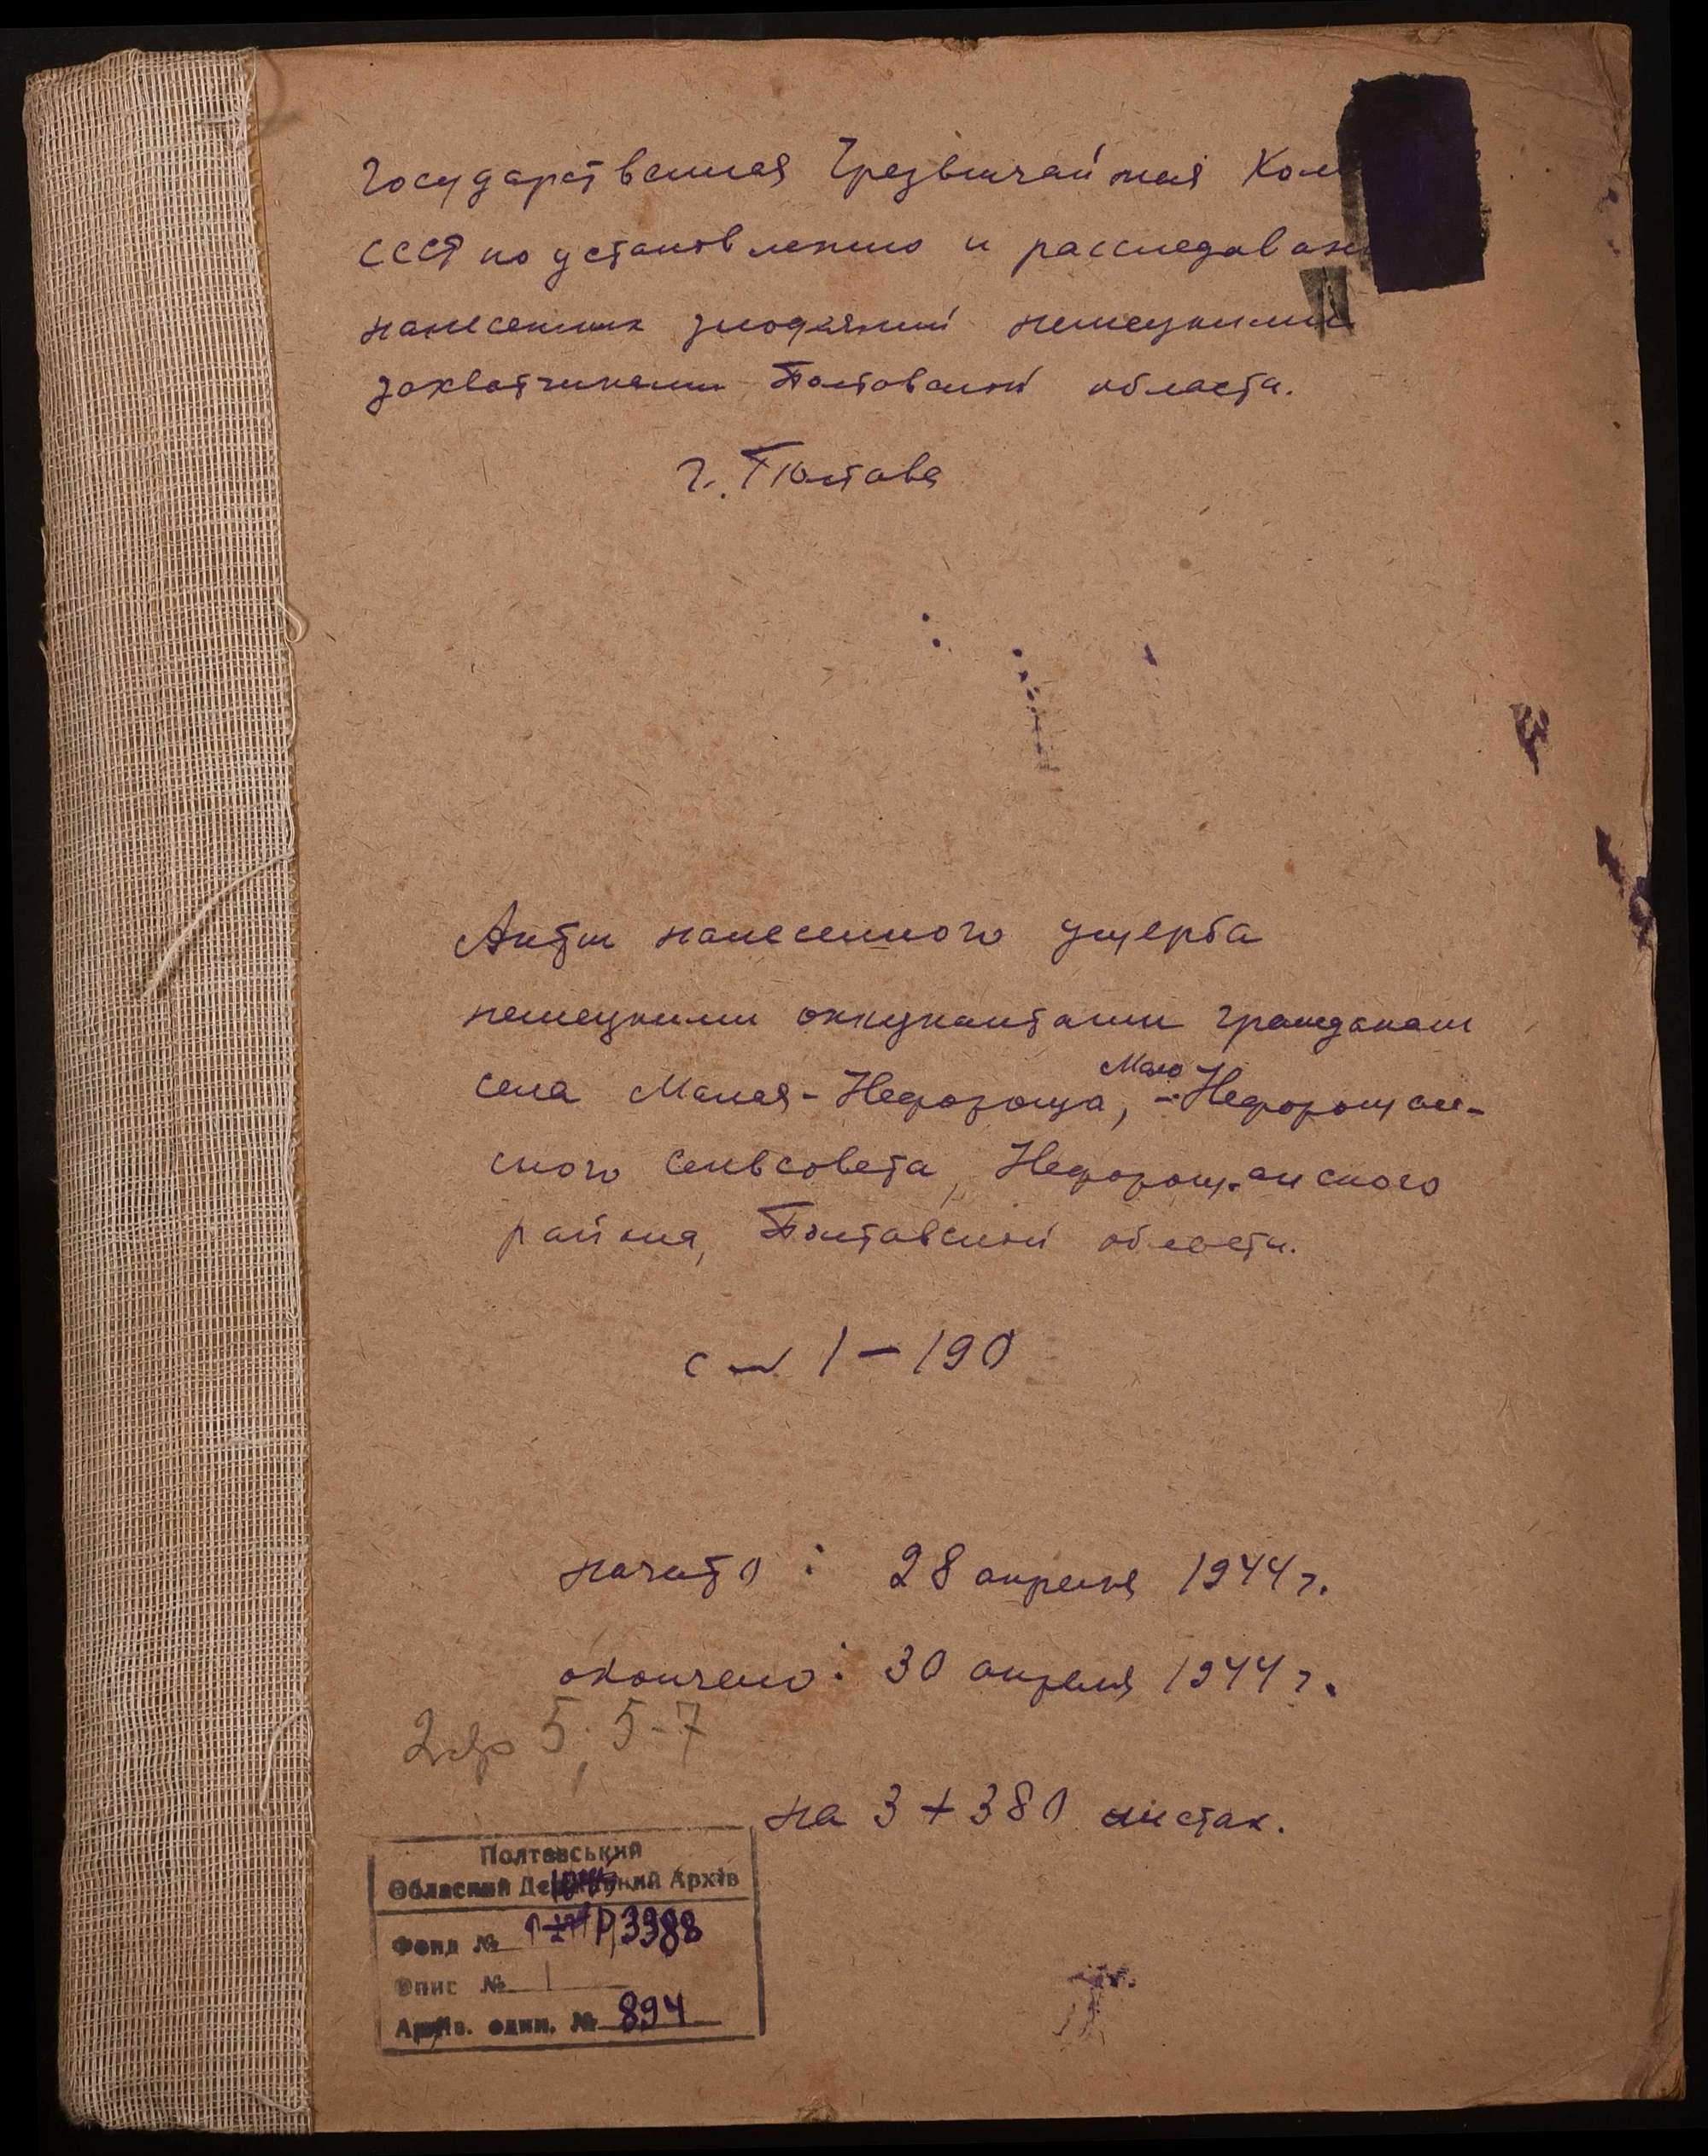 Государственная Чрезвычайная Ком
СССР по установлению и расследован
нанесенных злодеяний немецкими
захватчиками Полтавской области.
г. Полтава
Акты нанесенного ущерба
немецкими оккупантами гражданам
села Малая-Нехвороща, Мало-Нехворощан-
ского сельсовета, Нехворощанского
района, Полтавской области.
с № 1 – 190
начато: 28 апреля 1944 г.
окончено: 30 апреля 1944 г.
5; 5-7
на 3 + 380 листах.
Полтавський
Обласний Державний Архів
Фонд № Р3388
Опис № 1
Архів. один. № 894